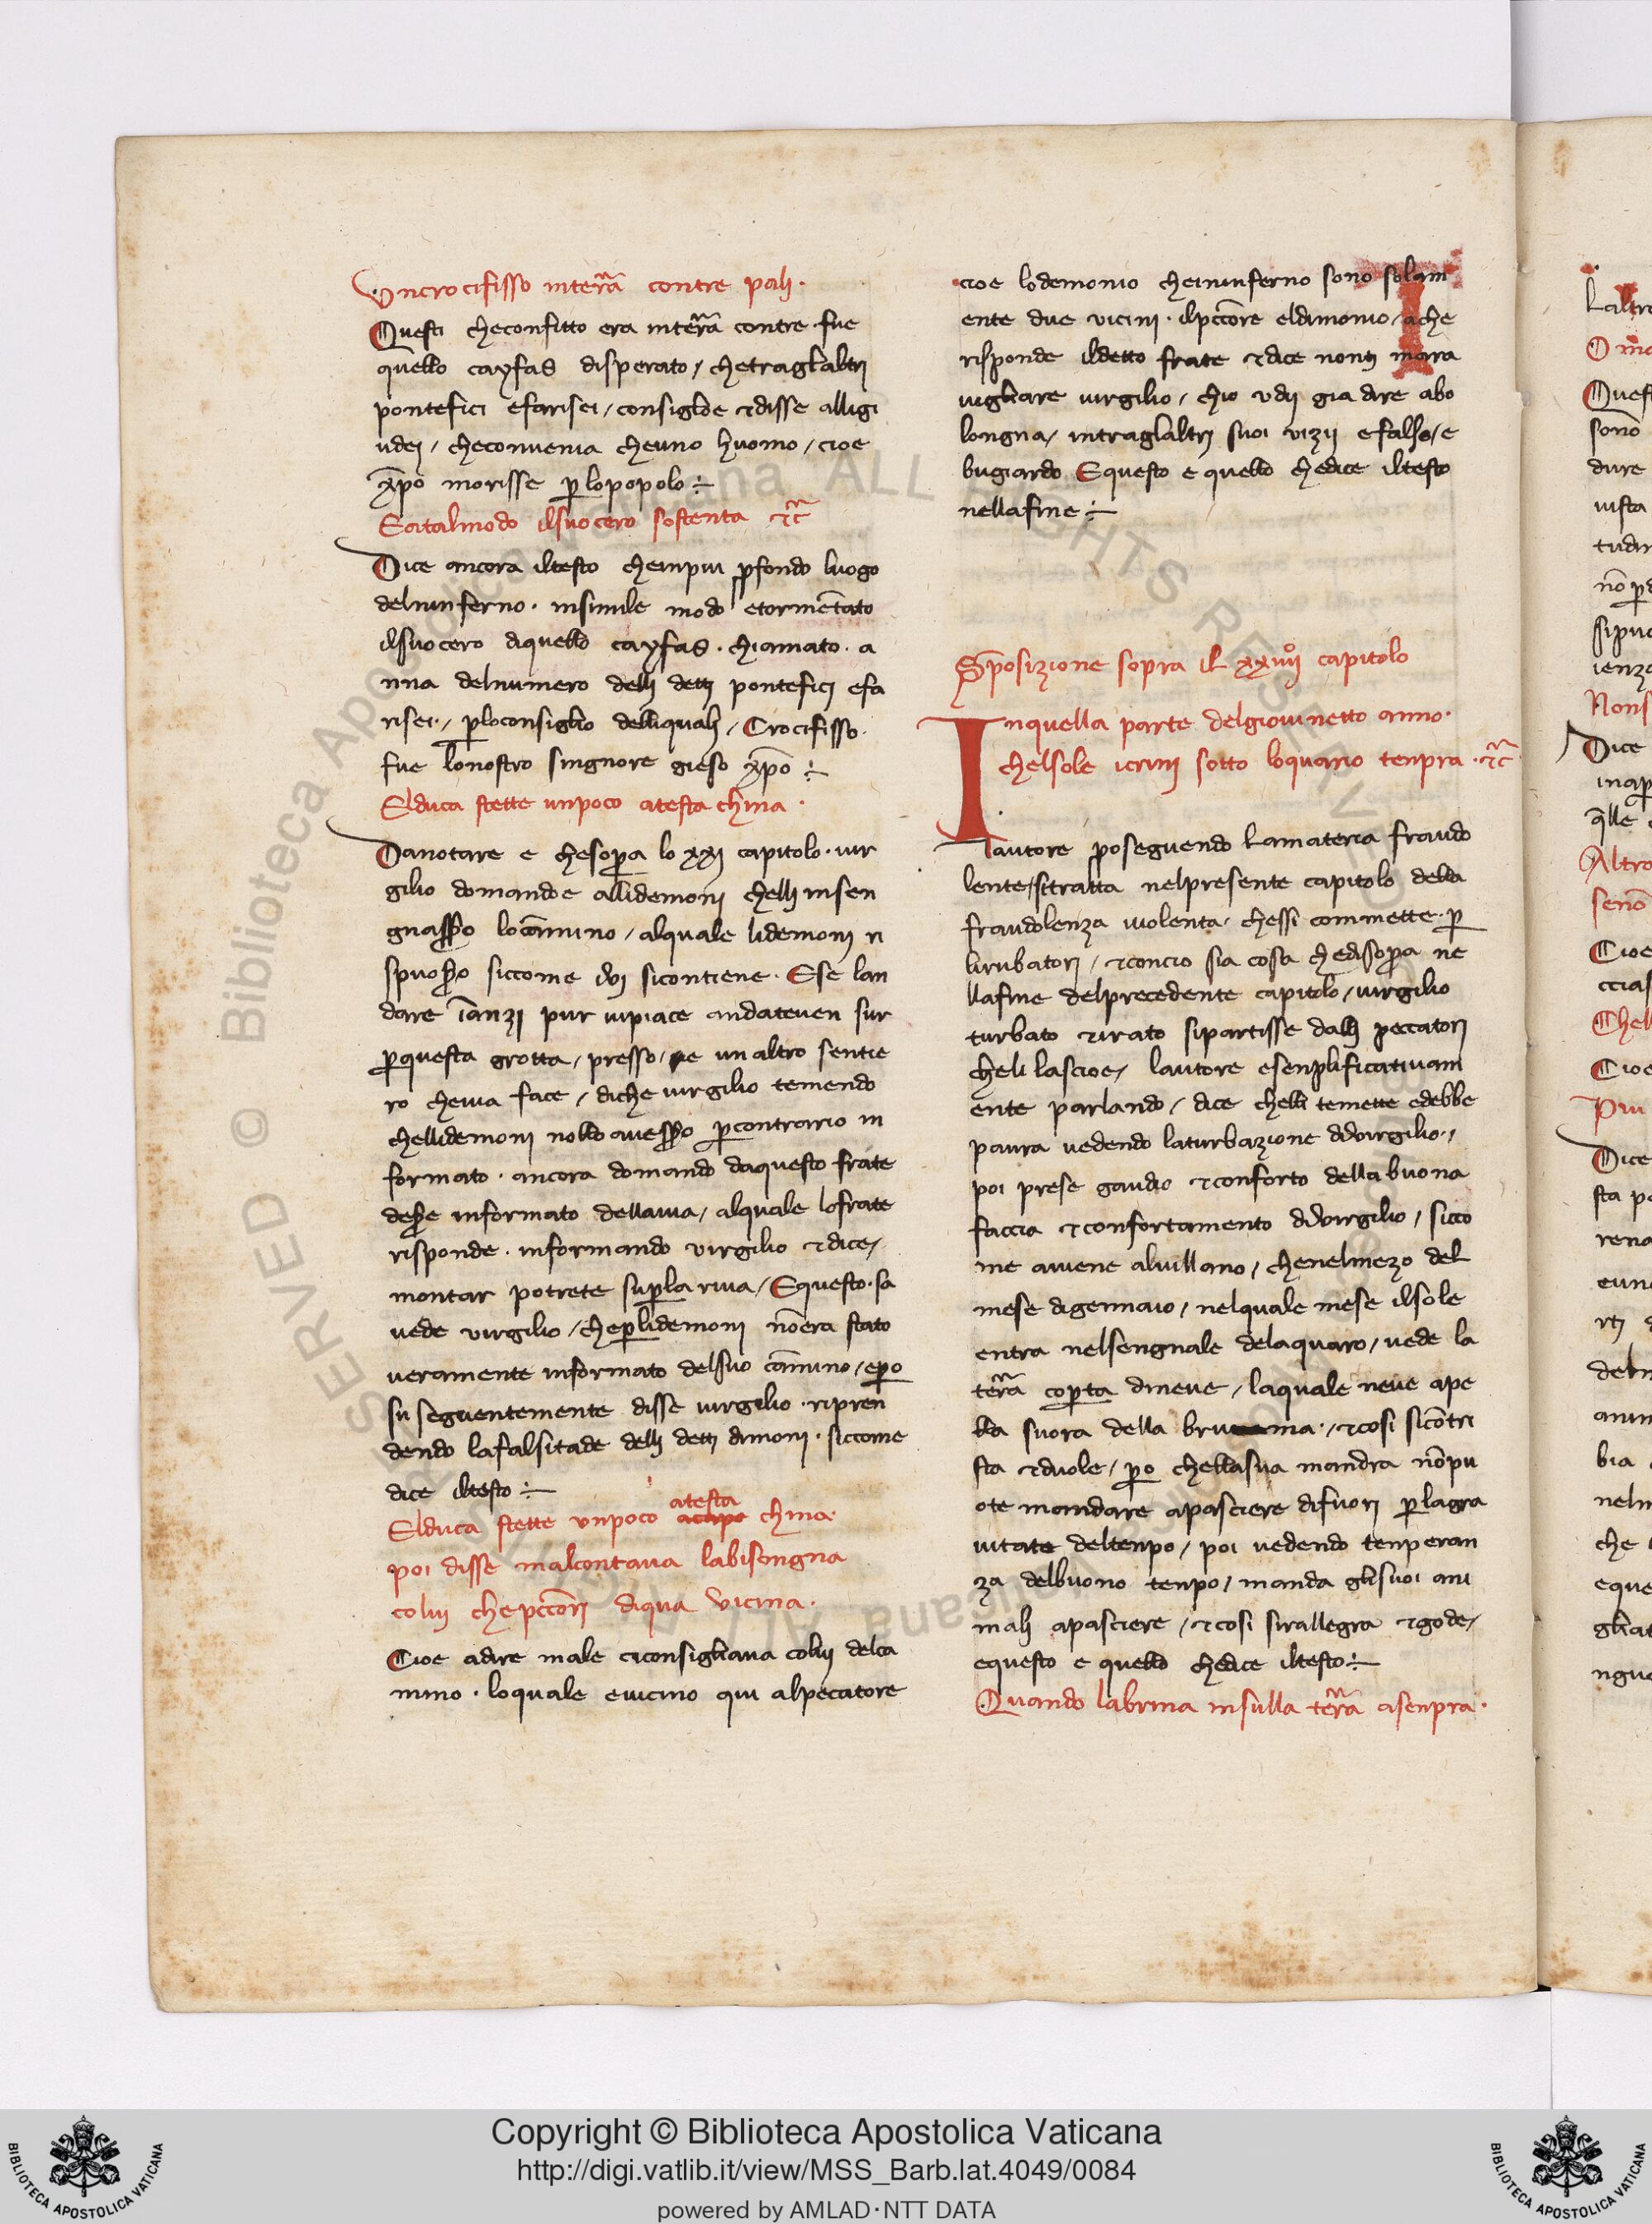 Uncrocifisso interra contre pali·
Questi checonfitto era interra contre· fue
quello cayfas disperato / chetraglialtri
pontefici efarisei / consiglioe ⁊disse alligi
udei / checonuenia cheuno huomo / cioe
xp̄o morisse ꝑlopopolo ÷
Eatalmodo ilsuocero sostenta ⁊c̄
Dice ancora iltesto cheinpiu ꝓfondo luogo
delninferno· insimile modo etormētato
ilsuocero diquello cayfas· chiamato· a
nna delnumero delli detti pontefici efa
risei· / ꝑloconsiglio delliquali / Crocifisso·
fue lonostro singnore gieso xp̄o ÷
Elduca stette unpoco atesta china·
Danotare e chesopꝛa lo xxj capitolo· uir
gilio domandoe allidemonj chelli insen
gnassꝑo locāmino / alquale lidemonj ri
spuosꝑo siccome iui sicontiene· Ese lan
dare īanzi pur uipiace andateuen sur
ꝑquesta grotta / presso / e un altro sentie
ro cheuia face / diche uirgilio temendo
chellidemonj nollo auessꝑo ꝑcontrario in
formato· ancora domando daquesto frate
desse informato dellauia / alquale lofrate
risponde· informando uirgilio ⁊dice /
montar potrete suꝑla riua / Equesto· sa
uede uirgilio / cheꝑlidemonj nōera stato
ueramente informato delsuo cāmino / eꝑo
suseguentemente disse uirgilio· ripren
dendo lafalsitade delli detti dimonj· siccome
dice iltesto ÷
Elduca stette unpoco atesta china·
poi disse malcontaua labisongna
colui chepcc̄ori diqua uicina·
Cioe adire male ciconsigliaua colui delca
mino· loquale euicino qui alpecatore
cioe lodemonio cheininferno sono solam
ente due uicini· ilpcc̄ore eldimonio / ache
risponde ildetto frate ⁊dice nonti mara
uigliare uirgilio / chio udij gia dire abo
longna / intraglaltri suoi vizij efalso / e
bugiardo Equesto e quello chedice iltesto
nellafine ÷
Sposizione sopra il xxiiijº capitolo
Inquella parte delgiouinetto anno·
chelsole icrini sotto loquario tenpra· ⁊c̄
Lautore ꝓseguendo Lamateria fraudo
lente / sitratta nelpresente capitolo della
fraudolenza uiolenta· chessi commette· ꝑ
lirubatori / ⁊concio sia cosa chedisopꝛa ne
llafine delprecedente capitolo / uirgilio
turbato ⁊irato sipartisse dalli peccatori
cheli lascioe / lautore esenplificatiuam
ente parlando / dice chelli temette edebbe
paura uedendo laturbazione diuirgilio· /
poi prese gaudio ⁊conforto della buona
faccia ⁊confortamento diuirgilio / sicco
me auiene aluillano / chenelmezo del
mese digennaio / nelquale mese ilsole
entra nelsengnale delaquaro / uede la
terra coꝑta dineue / laquale neue ape
lla suora della bruma· / ⁊cosi sicōtri
sta ⁊duole / ꝑo chellasua mandra nōpu
ote mandare apasciere difuori ꝑlagra
uitate deltenpo / poi uedendo tenperan
za delbuono tenpo / manda glisuoi ani
mali apasciere / ⁊cosi sirallegra ⁊gode /
equesto e quello chedice iltesto ÷
Quando labrina insulla terra asenpra·
Laltro
Quest
sono
dire
uista
tudin
nōꝑd
sipuo
ienza
Nons
Dice
inaꝑ
q̄lle
Altro
senō
Cioe
ccias
Chel
Cioe
Piu
Dice
sta po
rena
bia
neln
che
eque
gliat
SERVED © Biblioteca Apostolica Vaticana ALL RIGHTS RESERVED
Copyright © Biblioteca Apostolica Vaticana
http://digi.vatlib.it/view/MSS_Barb.lat.4049/0084
powered by AMLAD·NTT DATA
BIBLIOTECA APOSTOLICA VATICANA
BIBLIOTECA APOSTOLICA VATICANA